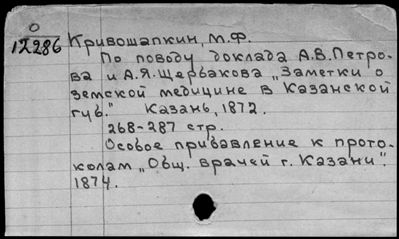 О
12286 Кривошапкин, М.Ф.
По поводу доклада А.В.Петро-
ва и А.Я.Щербакова „Заметки о
земской медицине в Казанской
губ." Казань, 1872.
268-287 стр.
Особое прибавление к прото-
колам „Общ. врачей г. Казани".
1874.